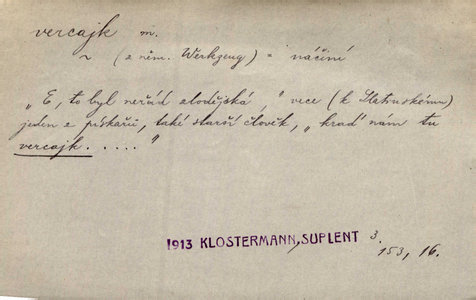 vercajk m.
~ (z něm. Werkzeug) = náčiní
„E, to byl neřád zlodějská,“ vece (k Slatruskému)
jeden z pískařů, také starší člověk, „krad' nám tu
vercajk . . . . . “
1913 KLOSTERMANN, SUPLENT 3.
153, 16.